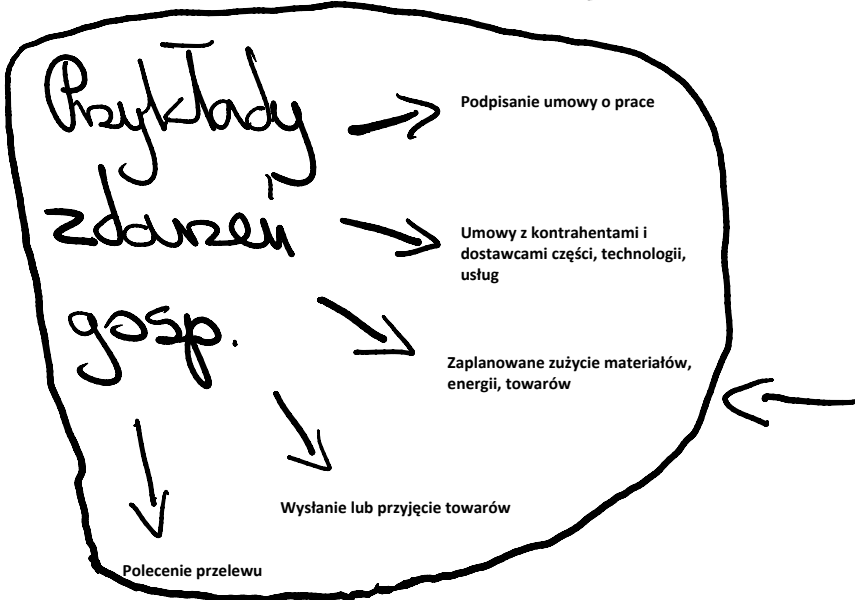 Przykłady
zdarzeń
gosp.
Podpisanie umowy o prace
Umowy z kontrahentami i
dostawcami części, technologii,
usług
Zaplanowane zużycie materiałów,
energii, towarów
Wysłanie lub przyjęcie towarów
Polecenie przelewu